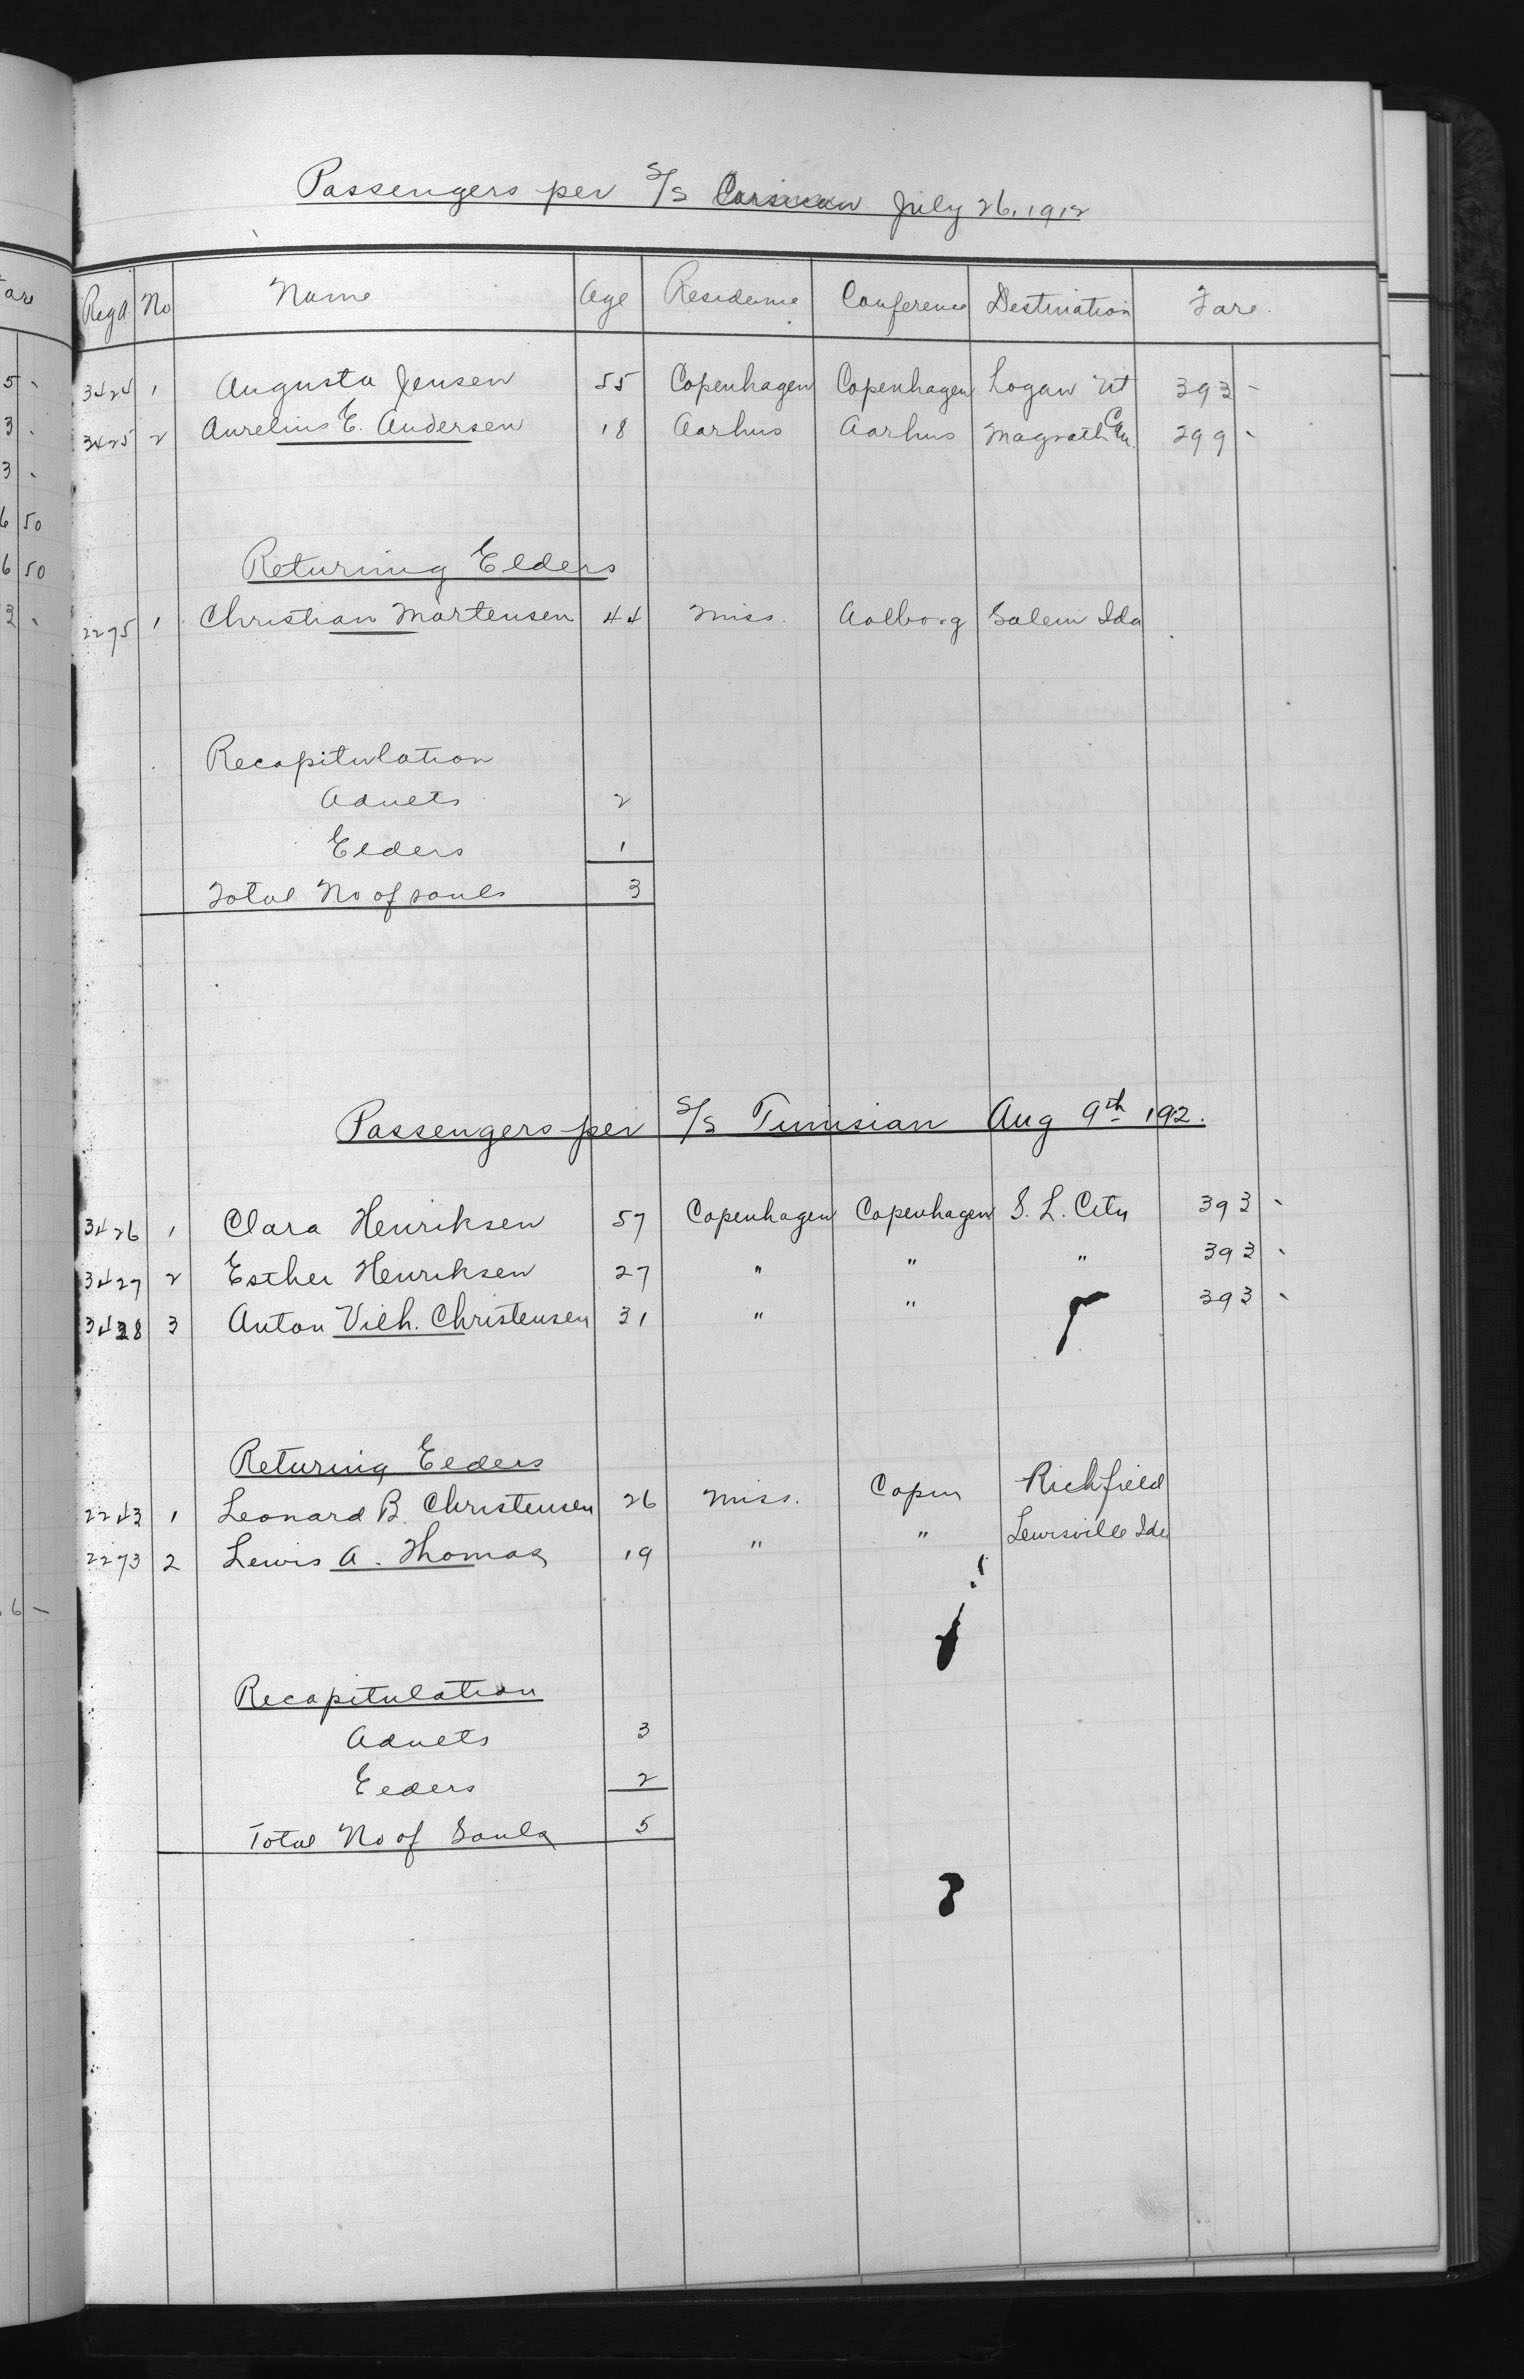 Passengers per S/S Corsican July 26, 1912
Regd. No Name Age Residence Conference Destination Fare.
3424 1 Augusta Jensen 55 Copenhagen Copenhagen Logan Ut 393 -
3425 2 Aurelius E. Andersen 18 Aarhus Aarhus Magrath Can. 299 -
Returning Elders
2275 1 Christian Mortensen 44 Miss. Aalborg Salem Ida
Recapitulation
Adults 2
Elders 1
Total No of souls 3
Passengers per S/S Tunisian Aug 9th 1912.
3426 1 Clara Henriksen 57 Copenhagen Copenhagen S. L. City 393 -
3427 2 Esther Henriksen 27 " " " 393 -
3428 3 Anton Vilh. Christensen 31 " " 393 -
Returing Elders
2243 1 Leonard B. Christensen 26 Miss. Copen Richfield
2273 2 Lewis A. Thomas 19 " " Lewisville Ida
Recapitulation
Adults 3
Elders 2
Total No of Souls 5
are
5 -
3 -
3 -
6 50
6 50
3 -
6 -